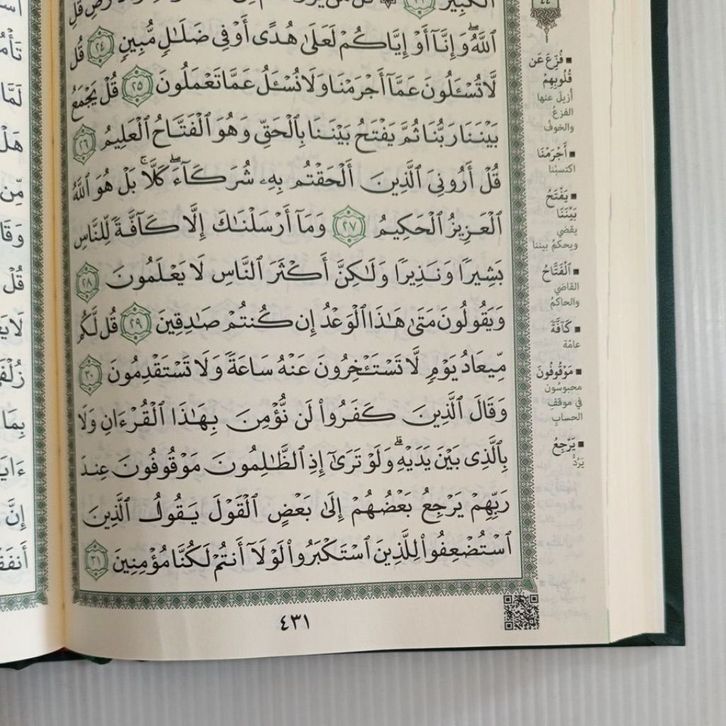 ٱللَّهُۖ وَإِنَّآ أَوۡ إِيَّاكُمۡ لَعَلَىٰ هُدًى أَوۡ فِي ضَلَٰلٖ مُّبِينٖ ٢٤ قُل
لَّا تُسۡـَٔلُونَ عَمَّآ أَجۡرَمۡنَا وَلَا نُسۡـَٔلُ عَمَّا تَعۡمَلُونَ ٢٥ قُلۡ يَجۡمَعُ
بَيۡنَنَا رَبُّنَا ثُمَّ يَفۡتَحُ بَيۡنَنَا بِٱلۡحَقِّ وَهُوَ ٱلۡفَتَّاحُ ٱلۡعَلِيمُ ٢٦
قُلۡ أَرُونِيَ ٱلَّذِينَ أَلۡحَقۡتُم بِهِۦ شُرَكَآءَۖ كَلَّاۚ بَلۡ هُوَ ٱللَّهُ
ٱلۡعَزِيزُ ٱلۡحَكِيمُ ٢٧ وَمَآ أَرۡسَلۡنَٰكَ إِلَّا كَآفَّةٗ لِّلنَّاسِ
بَشِيرٗا وَنَذِيرٗا وَلَٰكِنَّ أَكۡثَرَ ٱلنَّاسِ لَا يَعۡلَمُونَ ٢٨
وَيَقُولُونَ مَتَىٰ هَٰذَا ٱلۡوَعۡدُ إِن كُنتُمۡ صَٰدِقِينَ ٢٩ قُل لَّكُم
مِّيعَادُ يَوۡمٖ لَّا تَسۡتَـٔۡخِرُونَ عَنۡهُ سَاعَةٗ وَلَا تَسۡتَقۡدِمُونَ ٣٠
وَقَالَ ٱلَّذِينَ كَفَرُواْ لَن نُّؤۡمِنَ بِهَٰذَا ٱلۡقُرۡءَانِ وَلَا
بِٱلَّذِي بَيۡنَ يَدَيۡهِۗ وَلَوۡ تَرَىٰٓ إِذِ ٱلظَّٰلِمُونَ مَوۡقُوفُونَ عِندَ
رَبِّهِمۡ يَرۡجِعُ بَعۡضُهُمۡ إِلَىٰ بَعۡضٍ ٱلۡقَوۡلَ يَقُولُ ٱلَّذِينَ
ٱسۡتُضۡعِفُواْ لِلَّذِينَ ٱسۡتَكۡبَرُواْ لَوۡلَآ أَنتُمۡ لَكُنَّا مُؤۡمِنِينَ ٣١
٤٣١
فُزِّعَ عَن
قُلُوبِهِمۡ
أزيل عنها
الفزع
والخوف
أَجۡرَمۡنَا
اكتسبنا
يَفۡتَحُ
بَيۡنَنَا
يقضي
ويحكم بيننا
ٱلۡفَتَّاحُ
القاضي
والحاكم
كَآفَّةٗ
عامّة
مَوۡقُوفُونَ
محبوسون
في موقف
الحساب
يَرۡجِعُ
يردّ